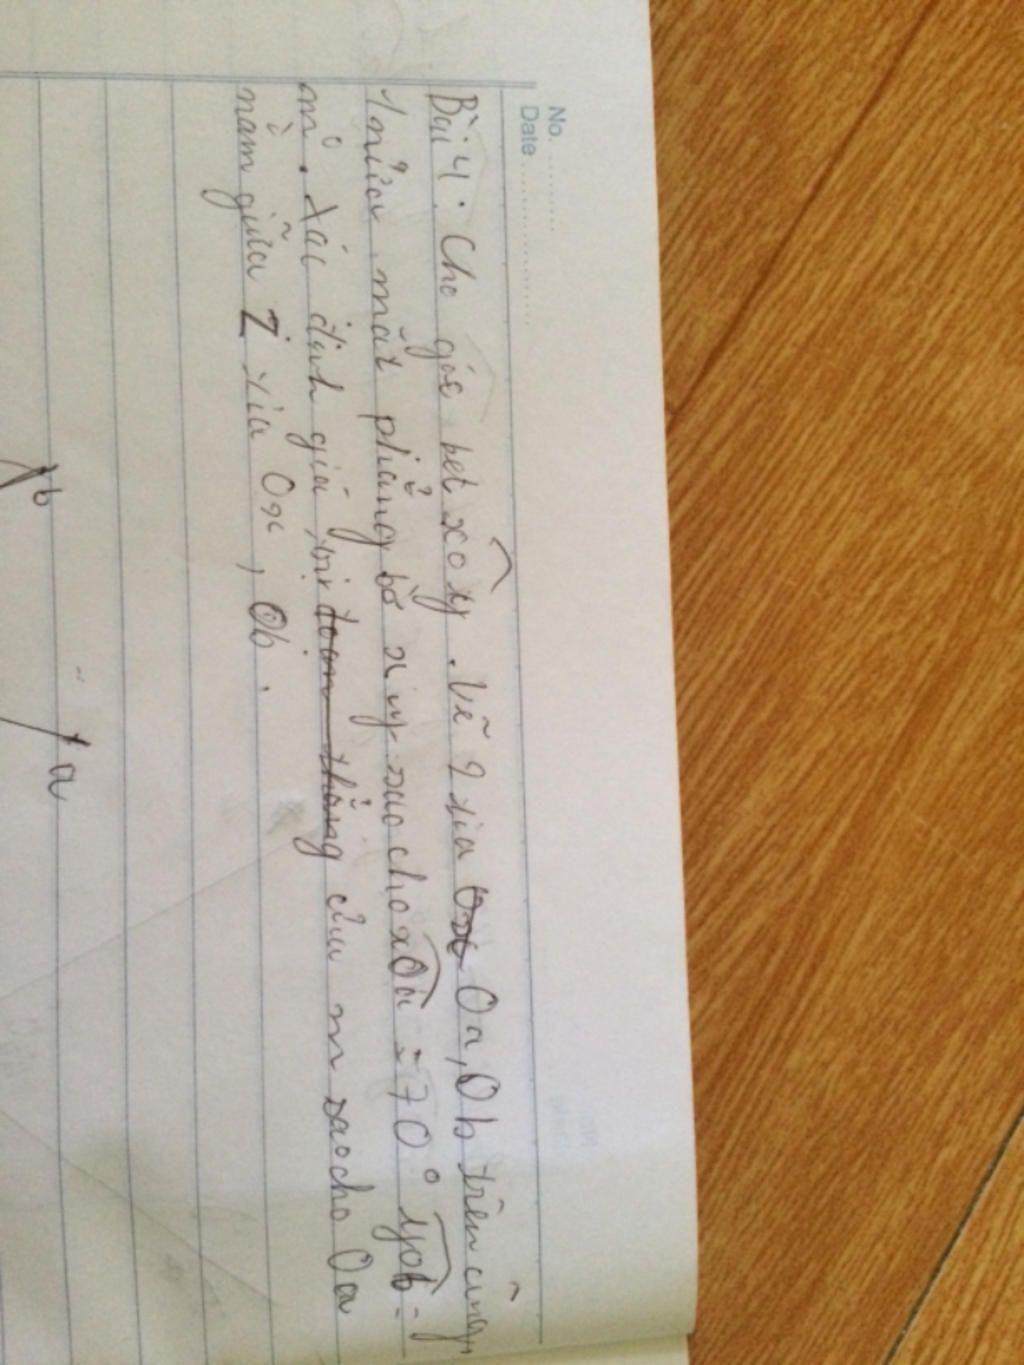 No. ..............
Date ..............................
Bài 4. Cho góc bẹt xOy. Vẽ 2 tia Oa, Ob trên cùng
1 nửa mặt phẳng bờ xy sao cho xOa = 70° yOb =
m°. Xác định giá trị đoạn thẳng của m sao cho Oa
nằm giữa 2 tia Ox, Ob.
b
a